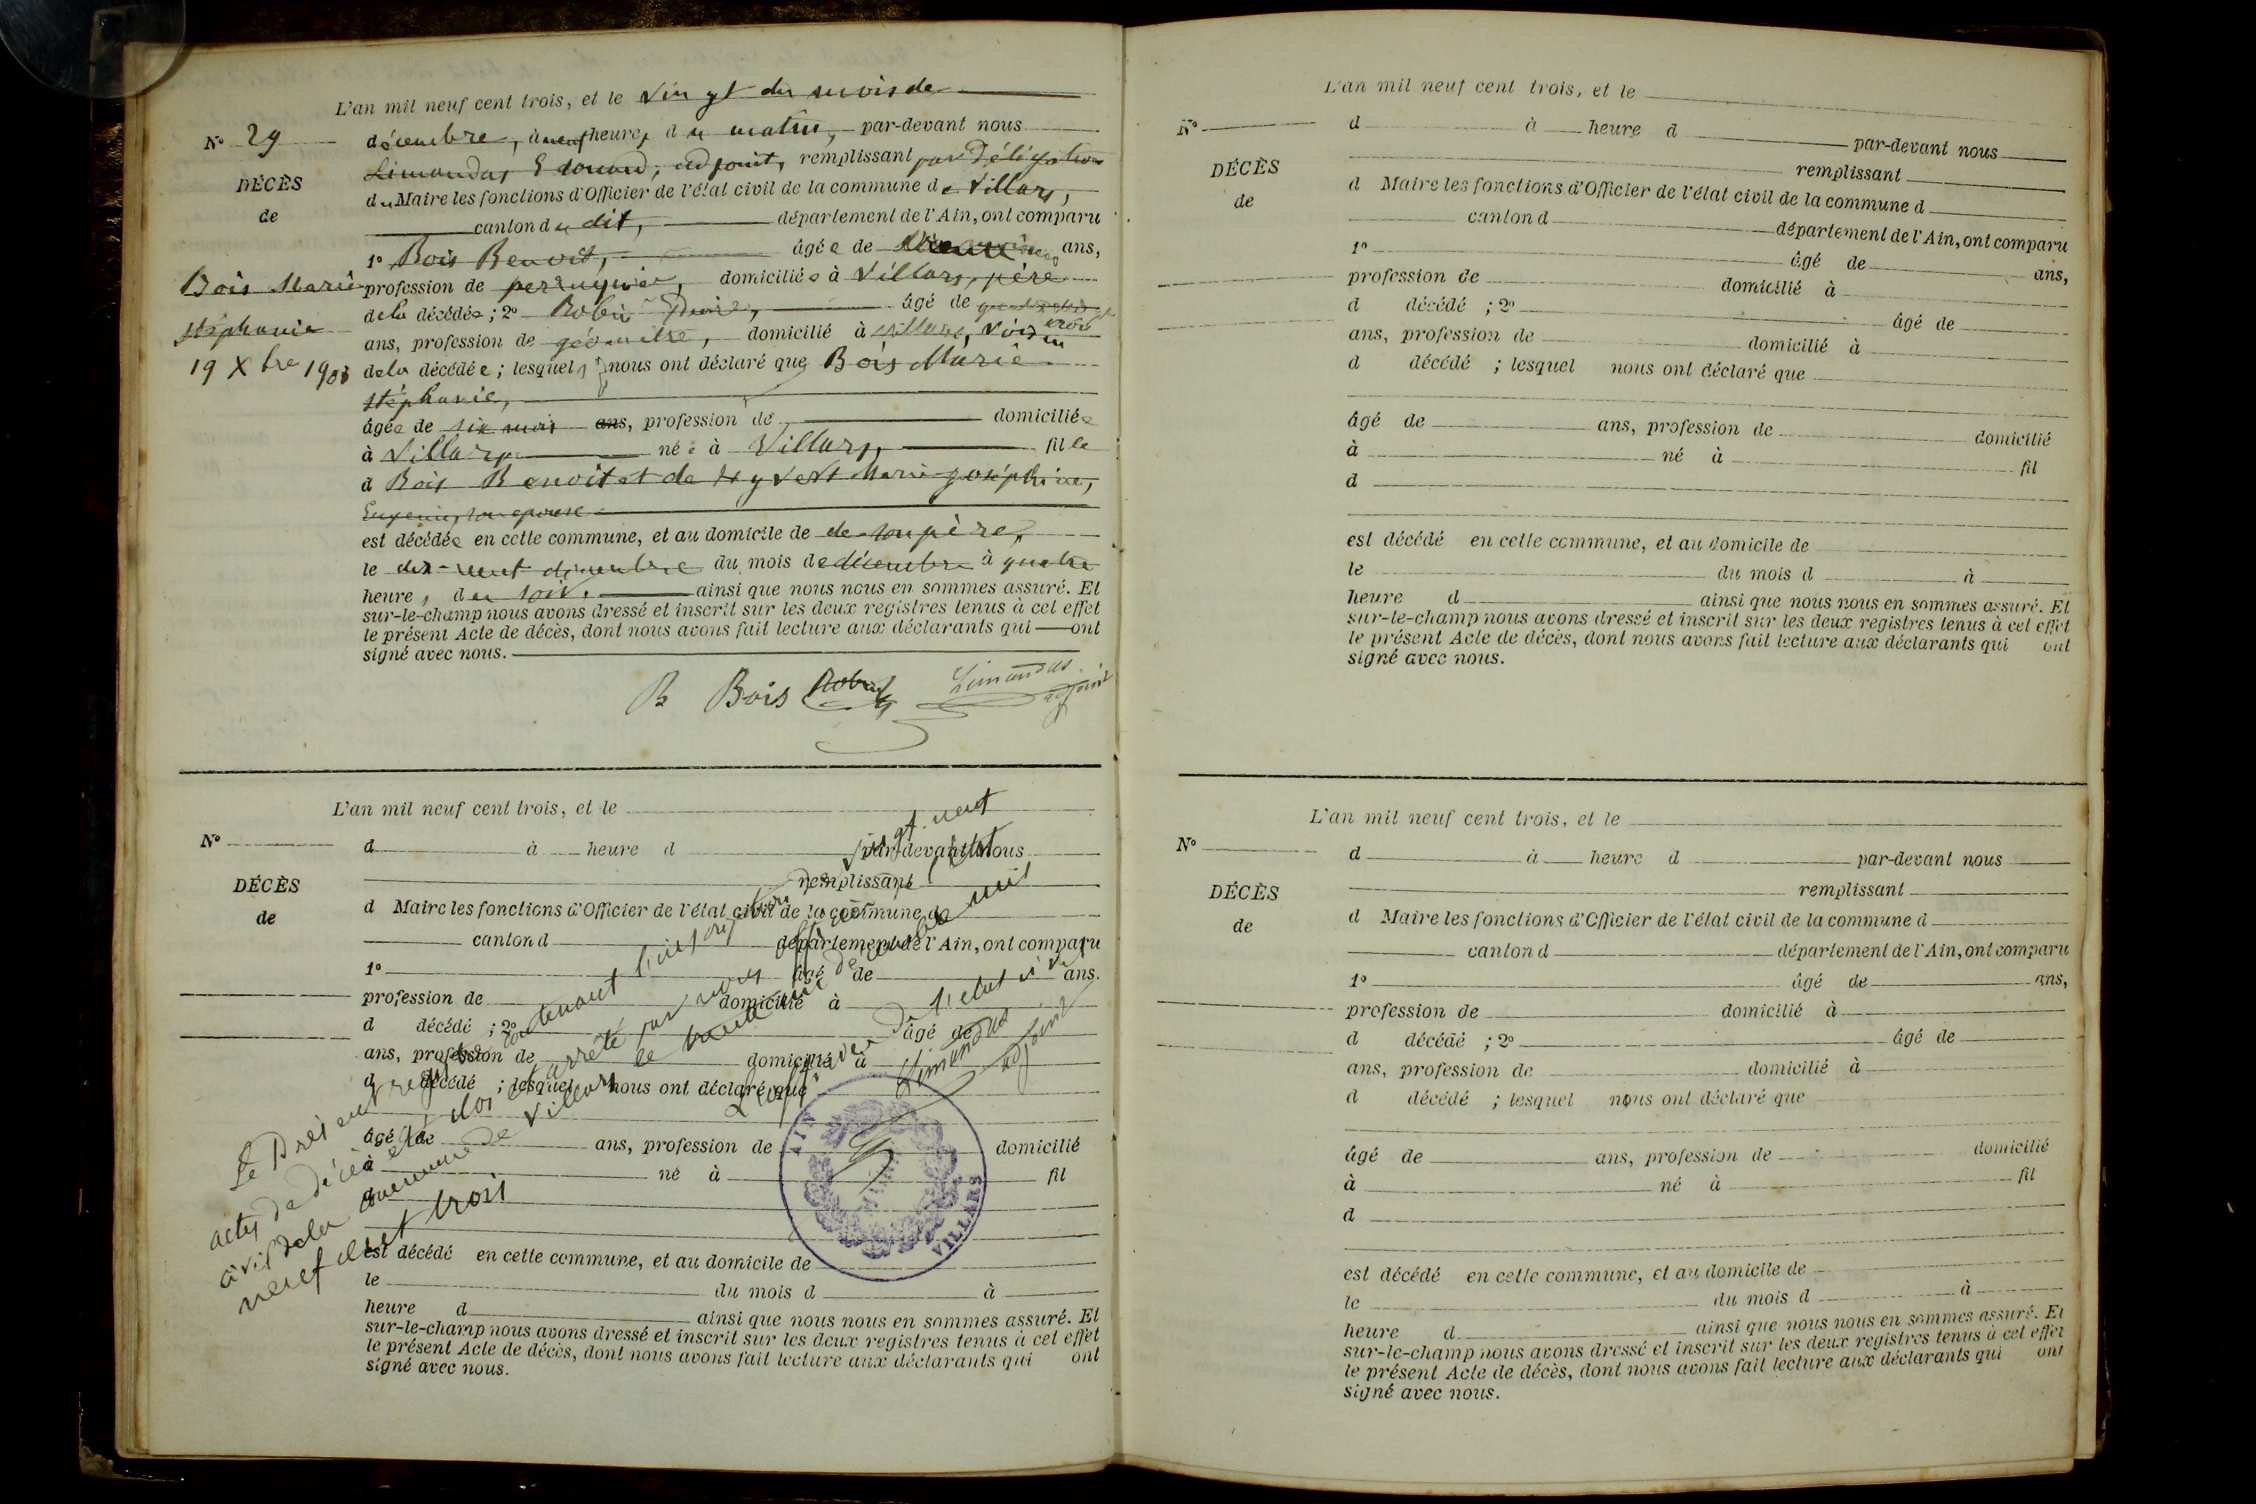 L'an mil neuf cent trois, et le vingt du mois de
N° 29
décembre, à neuf heures du matin, par-devant nous
Limandas Edouard, adjoint, remplissant par Délégation
DÉCÈS
du Maire les fonctions d'Officier de l'état civil de la commune de Villars,
de
canton du dit, département de l'Ain, ont comparu
1° Bois Benoit, âgé de ans,
Bois Marie
profession de perruquier, domicilié à Villars, père
stéphanie
de la décédée ; 2° Robin âgé de
ans, profession de géomètre, domicilié à villars, voisin
19 Xbre 1903
de la décédée ; lesquels nous ont déclaré que Bois Marie
stéphanie,
âgée de six mois ans, profession de domiciliée
à Villars, née à Villars, fille
d Bois Benoit et de Hyvert Marie Joséphine,
Eugenie, son epouse
est décédée en cette commune, et au domicile de de son père,
le dix-neuf décembre du mois de décembre à quatre
heures du soir. ainsi que nous nous en sommes assuré. Et
sur-le-champ nous avons dressé et inscrit sur les deux registres tenus à cet effet
le présent Acte de décès, dont nous avons fait lecture aux déclarants qui ont
signé avec nous.
B Bois Robin Limandas
adjoint
L'an mil neuf cent trois, et le
N°
d à heure d par-devant nous
remplissant
DÉCÈS
d Maire les fonctions d'Officier de l'état civil de la commune d
de
canton d département de l'Ain, ont comparu
1° âgé de ans.
profession de domicilié à
d décédé ; 2° âgé de
ans, profession de domicilié à
d décédé ; lesquel nous ont déclaré que
âgé de ans, profession de domicilié
à né à fil
d
est décédé en cette commune, et au domicile de
le du mois d à
heure d ainsi que nous nous en sommes assuré. Et
sur-le-champ nous avons dressé et inscrit sur les deux registres tenus à cet effet
le présent Acte de décès, dont nous avons fait lecture aux déclarants qui ont
signé avec nous.
Le Présent registre contenant vingt-neuf
actes de décès a été clos et arrêté par nous officier de l'état
civil de la commune de Villars le trente un décembre mil
neuf cent trois
L'officier de l'état civil
Limandas
adjoint
AIN
MAIRIE
VILLARS
L'an mil neuf cent trois, et le
N°
d à heure d par-devant nous
remplissant
DÉCÈS
d Maire les fonctions d'Officier de l'état civil de la commune d
de
canton d département de l'Ain, ont comparu
1° âgé de ans,
profession de domicilié à
d décédé ; 2° âgé de
ans, profession de domicilié à
d décédé ; lesquel nous ont déclaré que
âgé de ans, profession de domicilié
à né à fil
d
est décédé en cette commune, et au domicile de
le du mois d à
heure d ainsi que nous nous en sommes assuré. Et
sur-le-champ nous avons dressé et inscrit sur les deux registres tenus à cet effet
le présent Acte de décès, dont nous avons fait lecture aux déclarants qui ont
signé avec nous.
L'an mil neuf cent trois, et le
N°
d à heure d par-devant nous
remplissant
DÉCÈS
d Maire les fonctions d'Officier de l'état civil de la commune d
de
canton d département de l'Ain, ont comparu
1° âgé de ans,
profession de domicilié à
d décédé ; 2° âgé de
ans, profession de domicilié à
d décédé ; lesquel nous ont déclaré que
âgé de ans, profession de domicilié
à né à fil
d
est décédé en cette commune, et au domicile de
le du mois d à
heure d ainsi que nous nous en sommes assuré. Et
sur-le-champ nous avons dressé et inscrit sur les deux registres tenus à cet effet
le présent Acte de décès, dont nous avons fait lecture aux déclarants qui ont
signé avec nous.